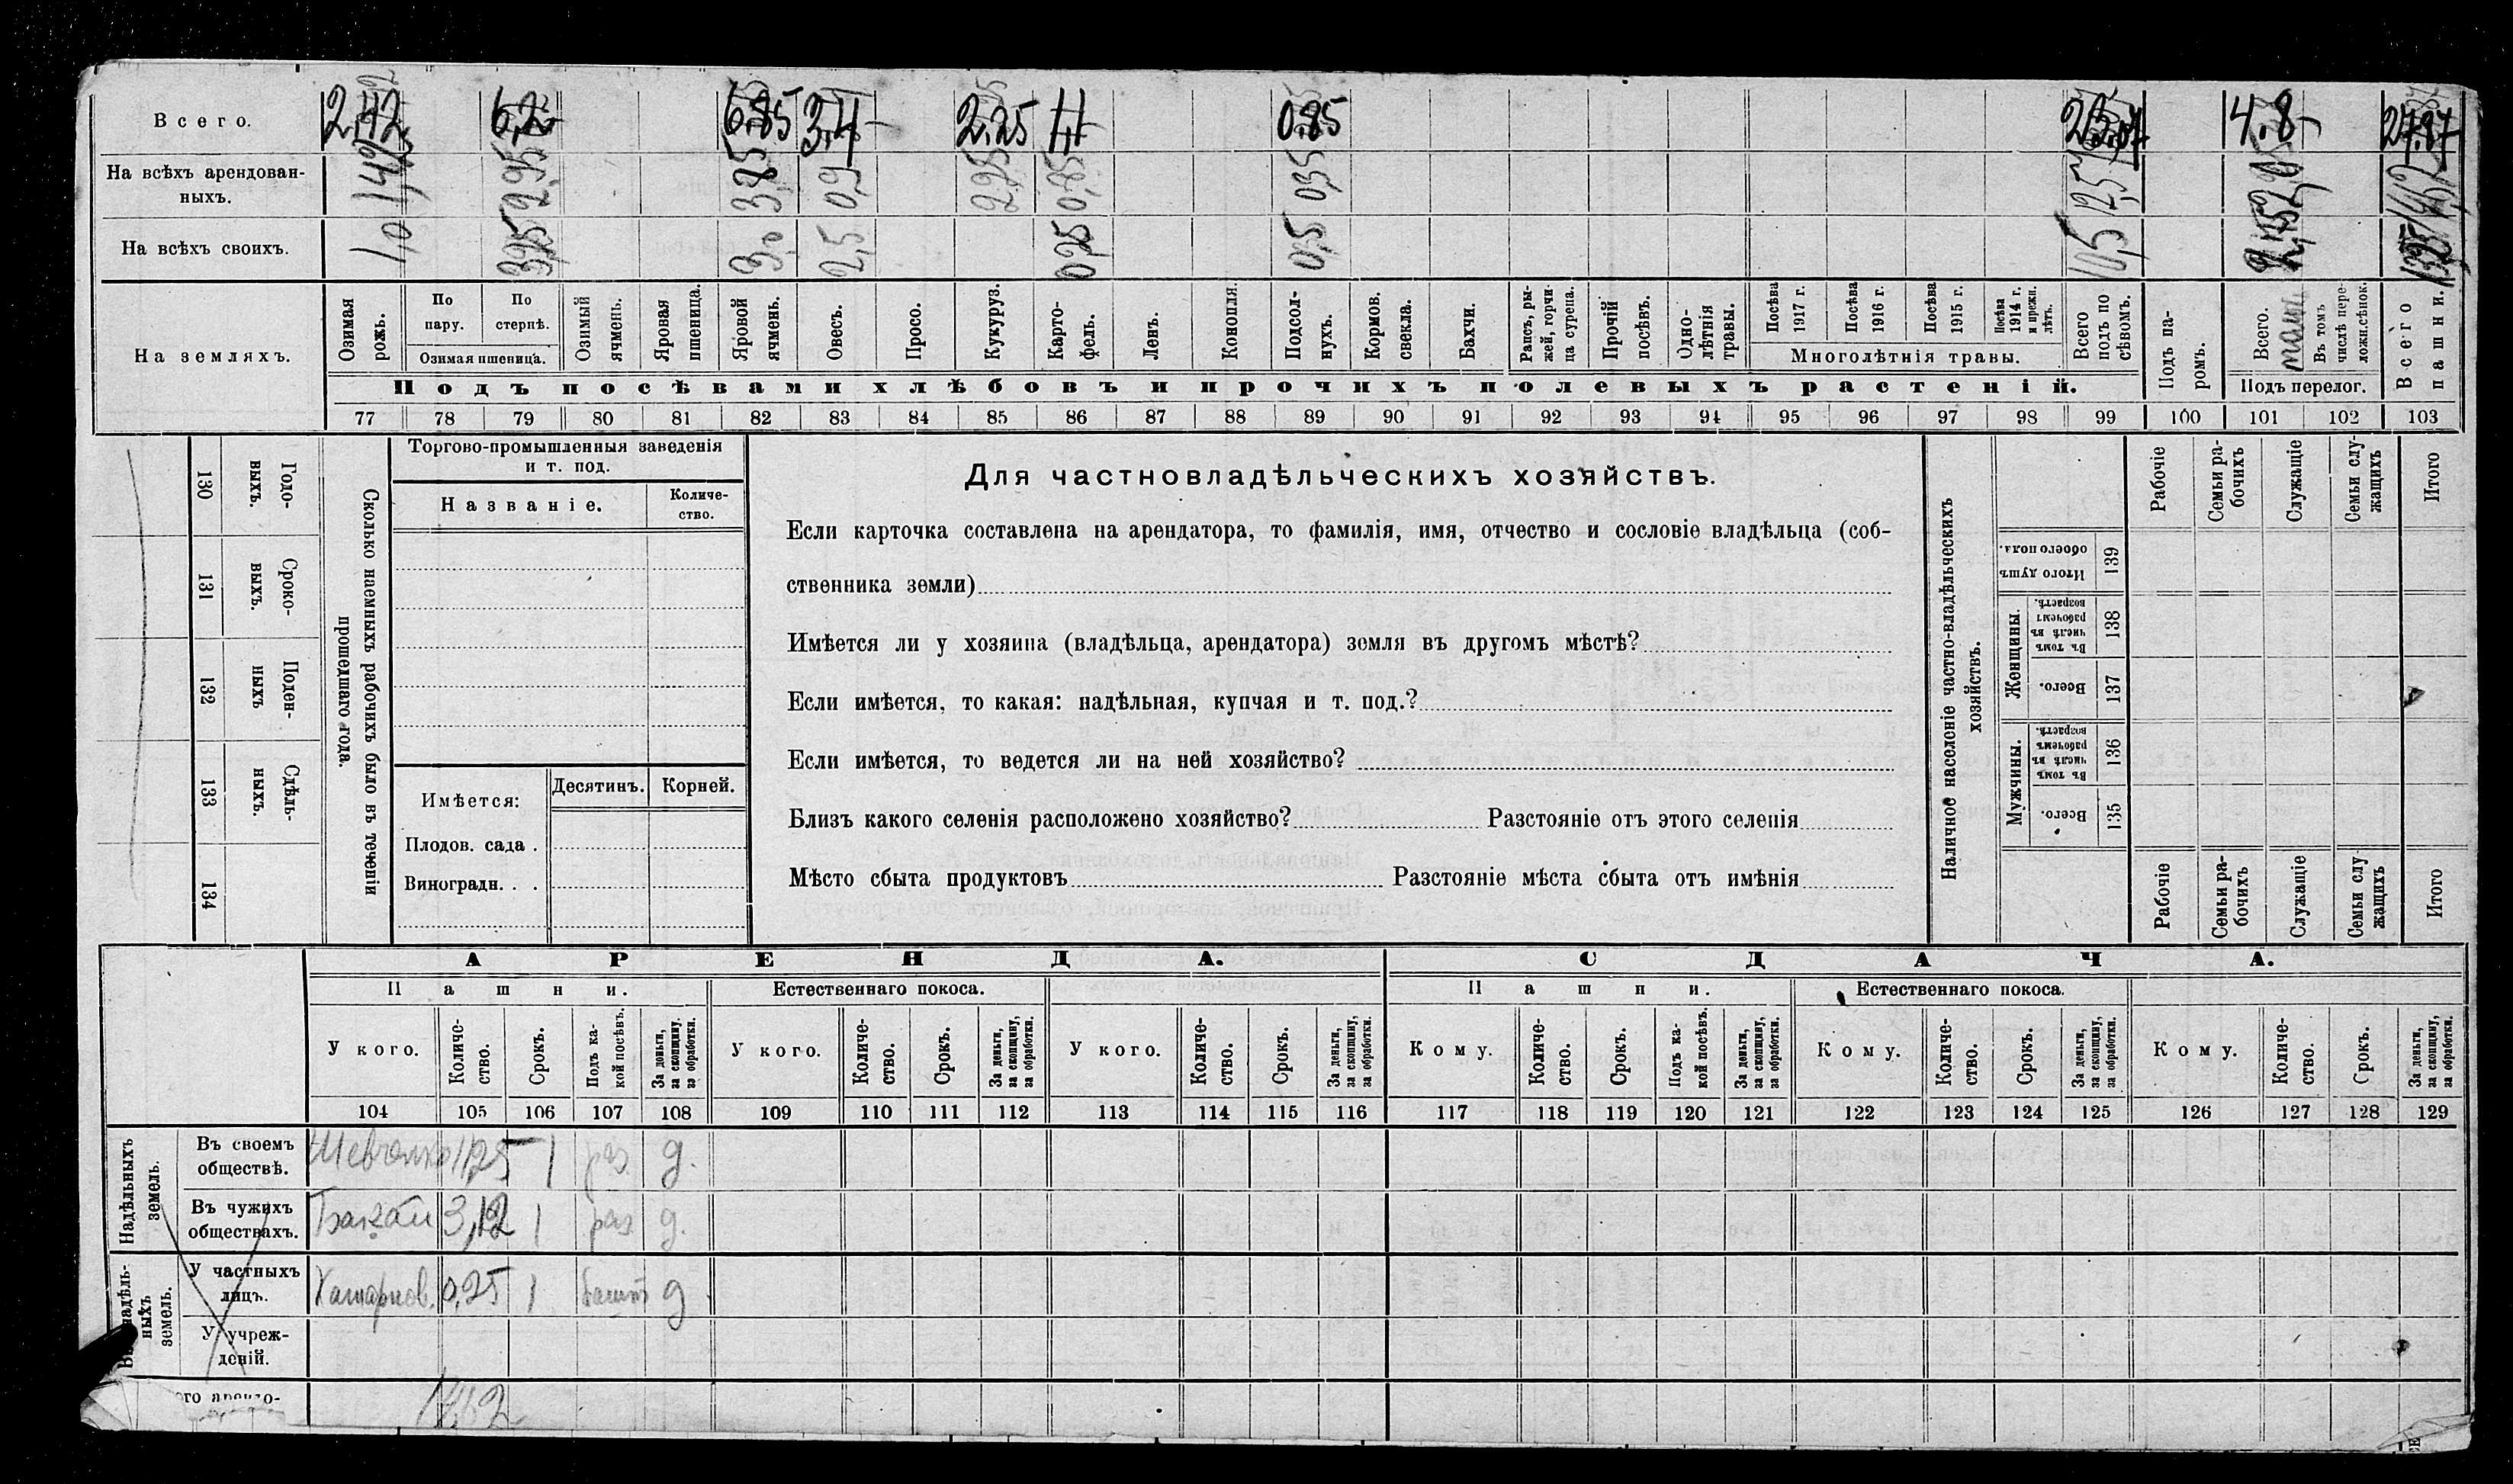 Всего. 2,42 6,2 6,85 3,4 2,25 1,1 0,85 4,8 27,87
На всѣхъ арендован-
ныхъ. 1,42 2,95 0,9 2,25 0,85 0,35 12,57
На всѣхъ своихъ. 1,0 3,25 3,0 2,5 0,25 0,5 10,5
На земляхъ.
Озимая рожь.
По пару.
По стернѣ.
Озимая пшеница.
Озимый ячмень.
Яровая пшеница.
Яровой ячмень.
Овесъ.
Просо.
Кукуруз.
Карто-
фель.
Ленъ.
Конопля.
Подсол-
нухъ.
Кормов. свекла.
Бахчи.
Рапсъ, ры-
жей, горчи-
ца сурепа.
Прочій посѣвъ.
Одно-
лѣтнія травы.
Посѣва 1917 г.
Посѣва 1916 г.
Посѣва 1915 г.
Посѣва 1914 г. и прежн. лѣтъ.
Многолѣтнія травы.
Всего подъ по
сѣвомъ.
Подъ па-
ромъ.
Всего.
Въ томъ числѣ пере-
ложн. сѣнок.
Подъ перелог.
Всего пашни.
Подъ посѣвами хлѣбовъ и прочихъ полевыхъ растеній.
77 78 79 80 81 82 83 84 85 86 87 88 89 90 91 92 93 94 95 96 97 98 99 100 101 102 103
130 Годо-
выхъ.
131 Сроко-
выхъ.
132 Поден-
ныхъ
133 Сдѣль-
ныхъ.
134
Сколько наемныхъ рабочихъ было въ теченіи
прошедшаго года.
Торгово-промышленныя заведенія
и т. под.
Названіе.
Количе-
ство.
Имѣется:
Десятинъ. Корней.
Плодов. сада .
Виноградн. . .
Для частновладѣльческихъ хозяйствъ.
Если карточка составлена на арендатора, то фамилія, имя, отчество и сословіе владѣльца (соб-
ственника земли)
Имѣется ли у хозяина (владѣльца, арендатора) земля въ другомъ мѣстѣ?
Если имѣется, то какая: надѣльная, купчая и т. под.?
Если имѣется, то ведется ли на ней хозяйство?
Близъ какого селенія расположено хозяйство? Разстояніе отъ этого селенія
Мѣсто сбыта продуктовъ Разстояніе мѣста сбыта отъ имѣнія
Наличное населеніе частно-владѣльческихъ
хозяйствъ.
Рабочіе
Семьи ра-
бочихъ
Служащіе
Семьи слу-
жащихъ
Итого
Итого душъ
обоего пола.
139
Женщины.
Въ томъ числѣ въ рабочемъ возрастѣ.
138
Всего.
137
Мужчины.
Въ томъ числѣ въ рабочемъ возрастѣ.
136
Всего.
135
Рабочіе
Семьи ра-
бочихъ
Служащіе
Семьи слу-
жащихъ
Итого
АРЕНДА. СДАЧА.
Пашни. Естественнаго покоса. Пашни. Естественнаго покоса.
У кого.
Количе-
ство.
Срокъ.
Подъ ка-
кой посѣвъ.
За деньги,
за скопщину,
за обработки.
У кого.
Количе-
ство.
Срокъ.
За деньги,
за скопщину,
за обработки.
У кого.
Количе-
ство.
Срокъ.
За деньги,
за скопщину,
за обработки.
Кому.
Количе-
ство.
Срокъ.
Подъ ка-
кой посѣвъ.
За деньги,
за скопщину,
за обработки.
Кому.
Количе-
ство.
Срокъ.
За деньги,
за скопщину,
за обработки.
Кому.
Количе-
ство.
Срокъ.
За деньги,
за скопщину,
за обработки.
104 105 106 107 108 109 110 111 112 113 114 115 116 117 118 119 120 121 122 123 124 125 126 127 128 129
Надѣльныхъ
земель.
Въ своемъ
обществѣ. 1 раз д.
Въ чужихъ
обществахъ. 1 раз д.
земель.
У частныхъ
лицъ. 0,25 1 д.
У учреж-
деній.